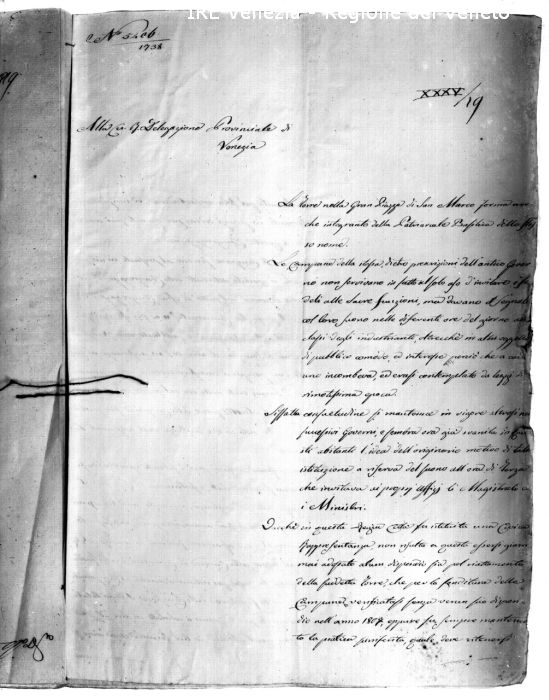 IRE Venezia - Regione del Veneto
N° 5406
1738
XXXV/19
Alla Delegazione Provinciale di
Venezia
La Torre nella Gran Piazza di San Marco forma
che integrante della Patriarcale Basilica dello
so nome.
Le Campane della stessa, dietro prescrizioni dell'antico Gover
no non servivano in fatto al solo uso d'invitare i fe
deli alle Sacre funzioni, ma davano il segnale
col loro suono nelle differenti ore del giorno
classi degli industrianti, altrechè in altri oggetti
di pubblico comodo, ed interesse perciò che a
une incombeva, ed erasi contemplato da leggi di
rimotissima epoca.
Siffatta consuetudine si mantenne in vigore
successivi Governi, e sembra ora già svanita in
sti abitanti l'idea dell'originario motivo di tale
istituzione a riserva del suono all'ora di Terza
che invitava ai proprj Uffizj li Magistrati
i Ministri.
in questa Regia Città fu istituita una Civica
Rappresentanza non risulta a questa essersi giam
mai adossato alcun dispendio sia pel riattamento
della suddetta Torre, che per la fenditura della
Campana verificatasi senza verun suo dispen
dio nell'anno 1808, eppure fu sempre mantenu
ta la pratica, quale deve ritenersi